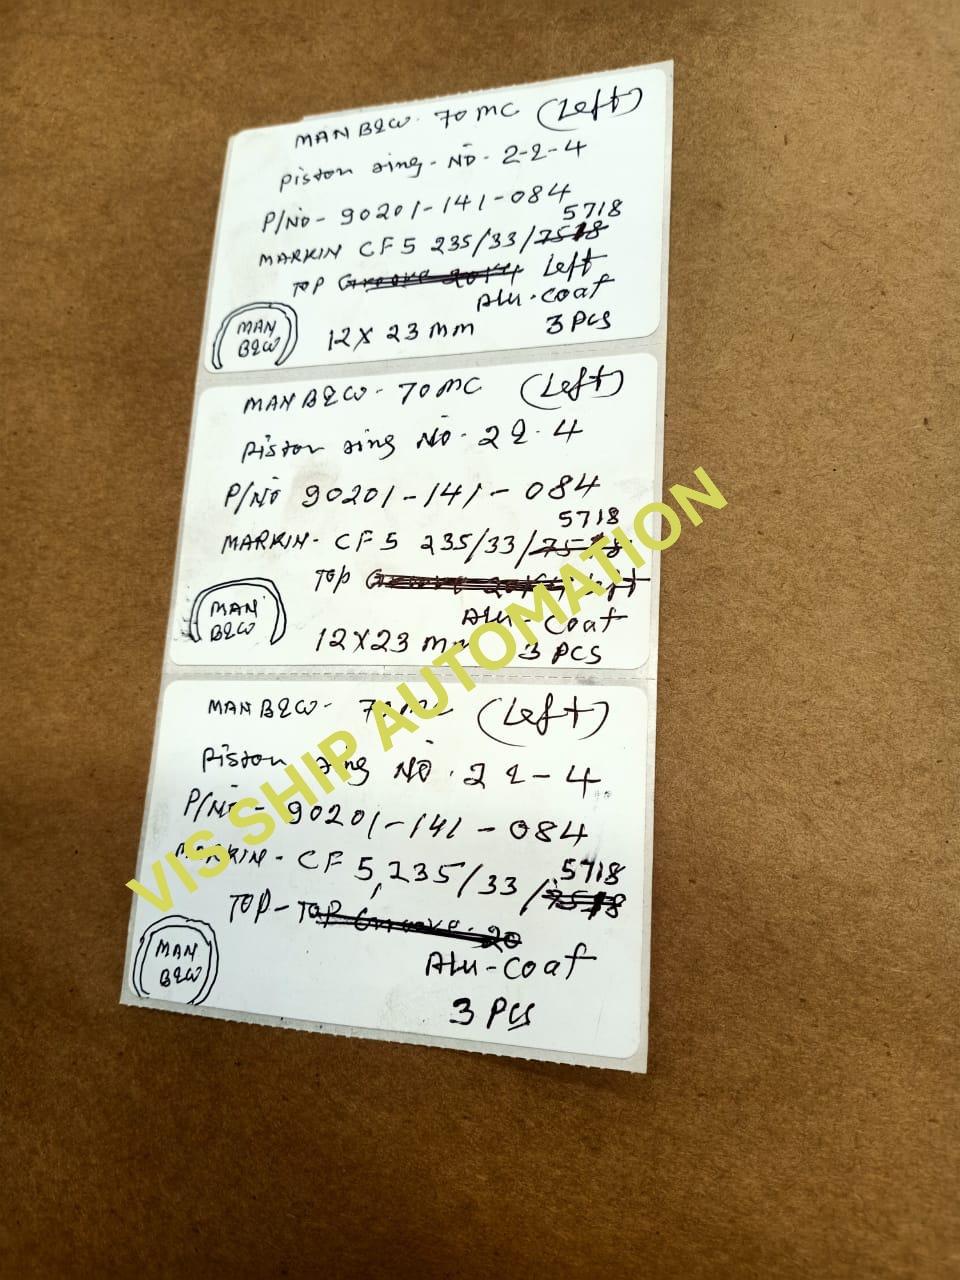 MAN B&W - 70 MC (Left)
Piston ring - NO - 2-2-4
P/NO - 90201-141-084
5718
MARKIN CF5 235/33/7518
TOP Groove Left
Alu-coat
MAN B&W 12 X 23 mm 3 PCS
MAN B&W - 70 MC (Left)
Piston ring NO - 2 2 - 4
P/NO 90201-141-084
5718
MARKIN - CF5 235/33/7518
TOP Left
Alu-Coat
MAN B&W 12X23 mm 3 PCS
MAN B&W - 70 MC (Left)
Piston ring NO . 2 2-4
P/NO - 90201-141-084
5718
MARKIN - CF5,235/33/7518
TOP - TOP Groove - 20
MAN B&W Alu-coat
3 PCS
VIS SHIP AUTOMATION